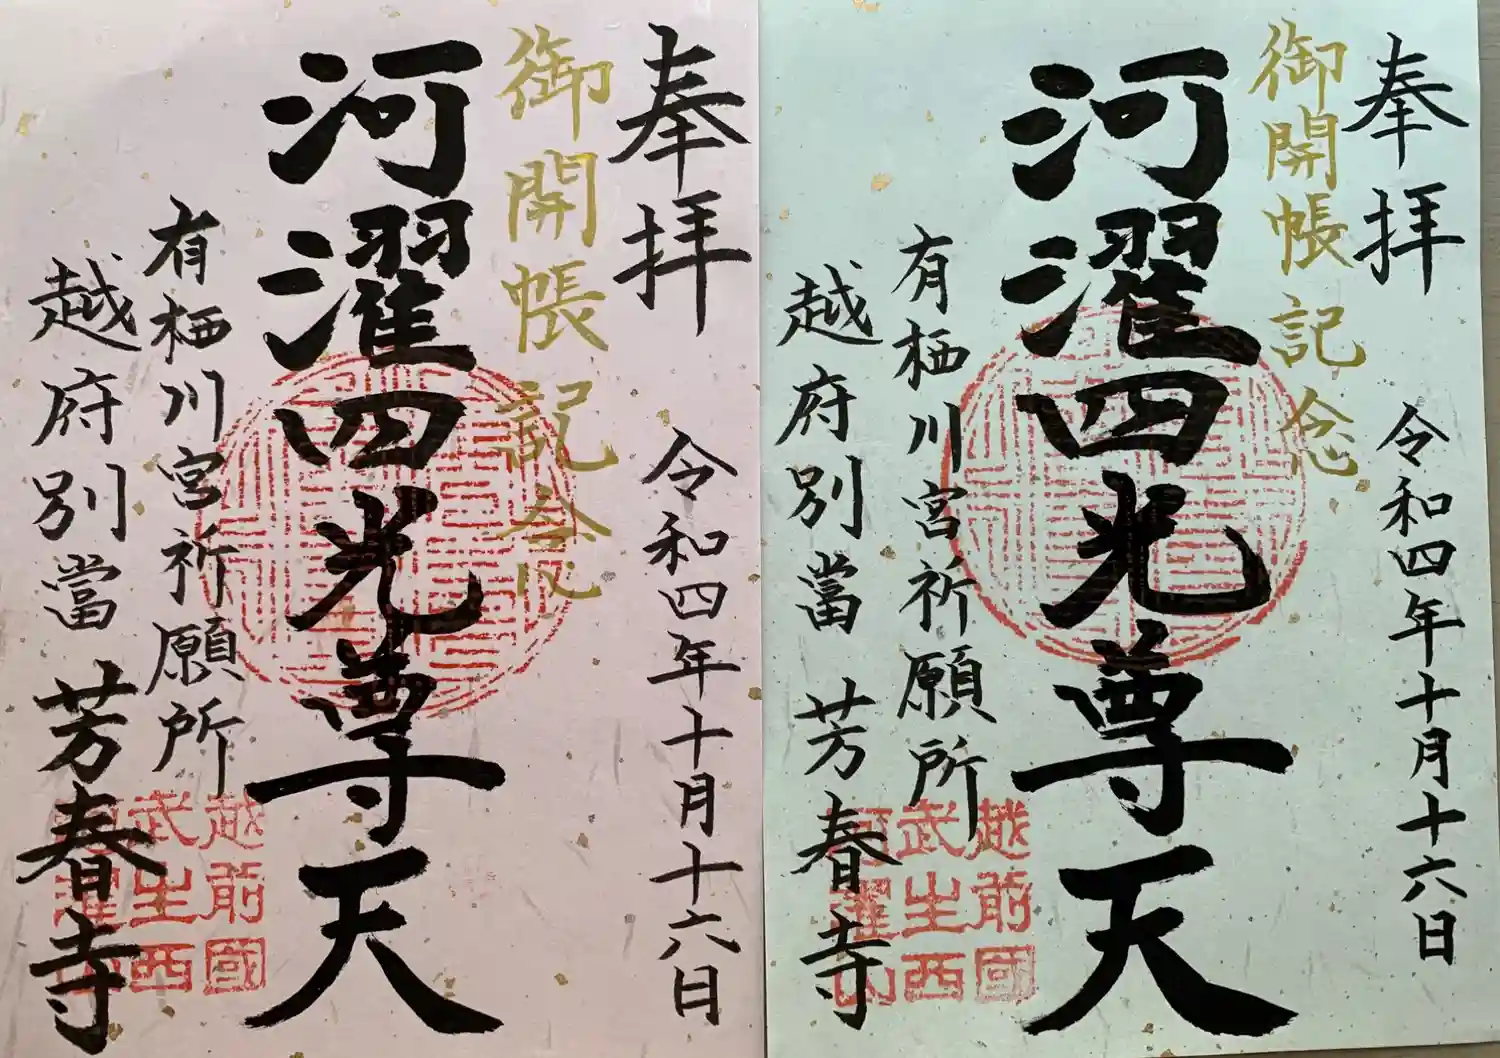 奉拝
令和四年十月十六日
御開帳記念
河濯四光尊天
有栖川宮祈願所
越府別當 芳春寺
越前國
武生西
奉拝
令和四年十月十六日
御開帳記念
河濯四光尊天
有栖川宮祈願所
越府別當 芳春寺
越前國
武生西
河濯山